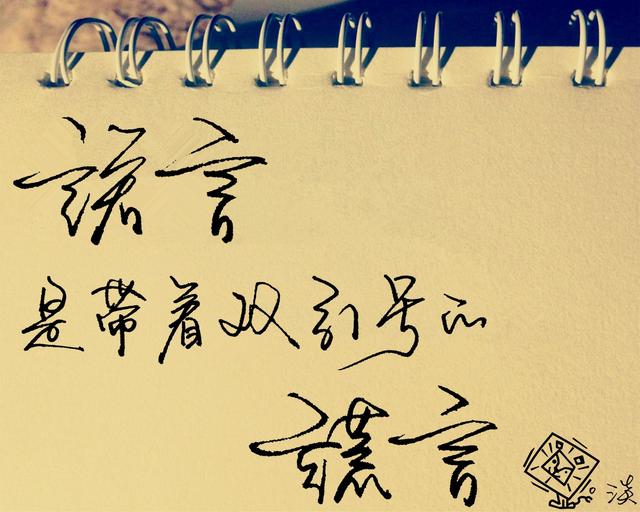 諾言
是带着双引号的
謊言
淡